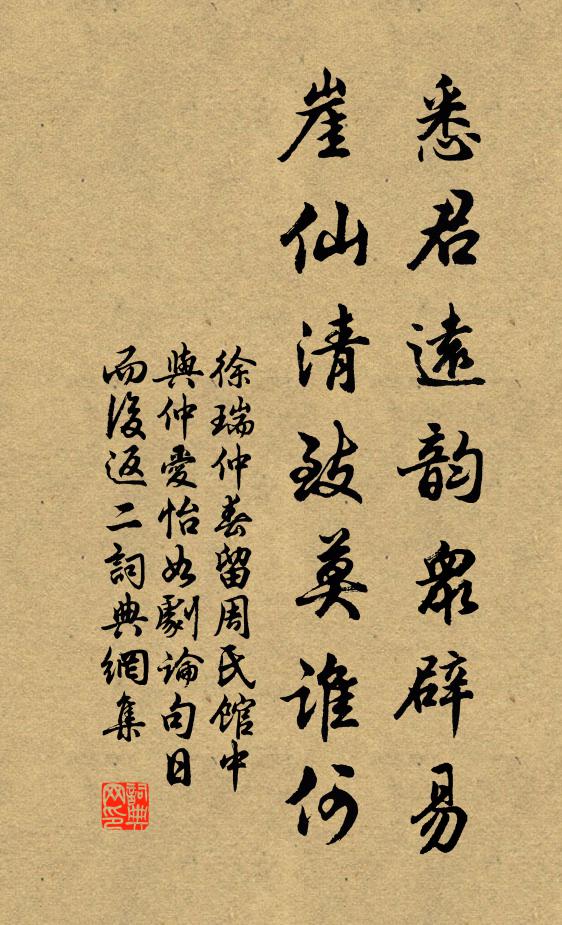 悉君遠韵衆辟易
崖仙清致莫誰何
徐瑞仲春留周氏館中
與仲愛怡如劇論句日
而後返二詞典網集
詞典网印